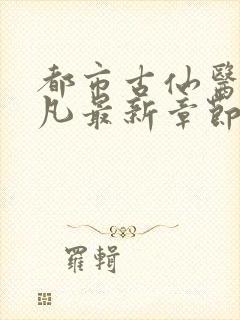 都市古仙醫
凡最新章節
羅輯